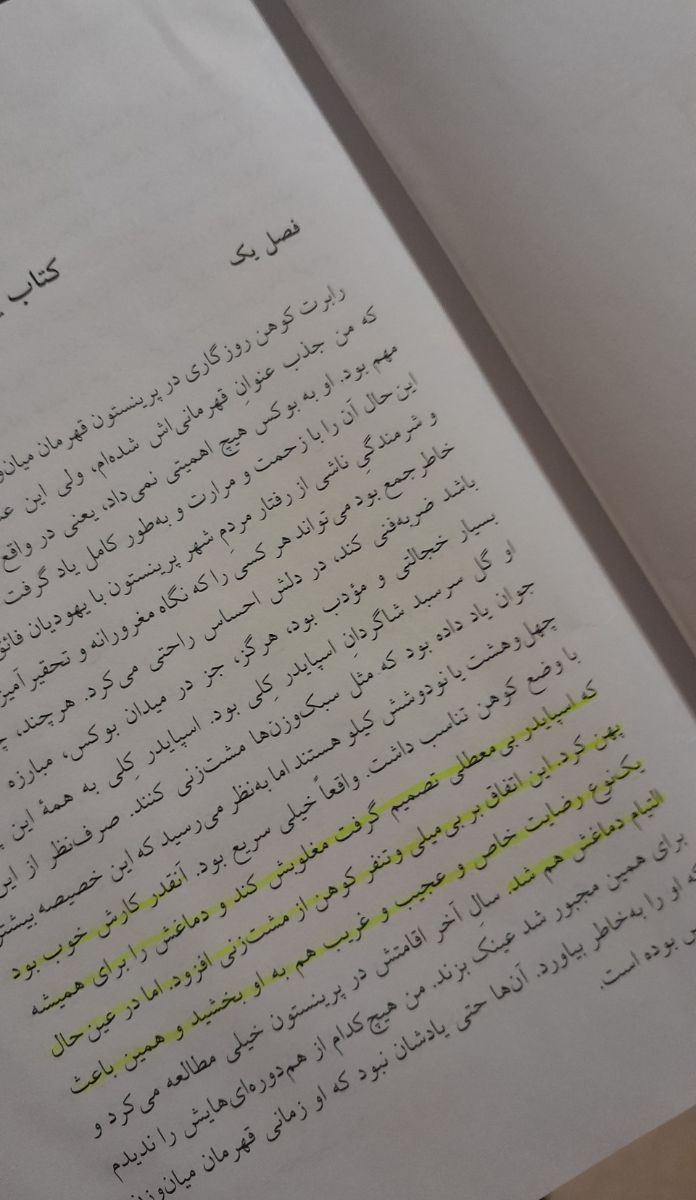 کتاب
فصل یک
رابرت کوهن روزگاری در پرینستون قهرمان
که من جذب عنوانِ قهرمانی‌اش شده‌ام، ولی این
مهم بود. او به بوکس هیچ اهمیتی نمی‌داد، یعنی در واقع
این حال آن را با زحمت و مرارت و به‌طور کامل یاد گرفت
و شرمندگیِ ناشی از رفتار مردمِ شهر پرینستون با یهودیان
خاطرجمع بود می‌تواند هر کسی را که نگاه مغرورانه و تحقیرآمیز
باشد ضربه‌فنی کند، در دلش احساس راحتی می‌کرد. هرچند،
بسیار خجالتی و مؤدب بود، هرگز، جز در میدان بوکس، مبارزه
او گل سرسبد شاگردانِ اسپایدر کِلی بود. اسپایدر کِلی به همهٔ این
جوان یاد داده بود که مثل سبک‌وزن‌ها مشت‌زنی کنند. صرف‌نظر از این
چهل‌وهشت یا نودوشش کیلو هستند اما به‌نظر می‌رسید که این خصیصه بیشتر
با وضع کوهن تناسب داشت. واقعاً خیلی سریع بود. آنقدر کارش خوب بود
که اسپایدر بی‌معطلی تصمیم گرفت مغلوبش کند و دماغش را برای همیشه
پهن کرد. این اتفاق بر بی‌میلی و تنفر کوهن از مشت‌زنی افزود. اما در عین‌حال
یک‌نوع رضایت خاص و عجیب و غریب هم به او بخشید و همین باعث
التیام دماغش هم شد. سالِ آخر اقامتش در پرینستون خیلی مطالعه می‌کرد و
برای همین مجبور شد عینک بزند. من هیچ‌کدام از هم‌دوره‌ای‌هایش را ندیدم
که او را به‌خاطر بیاورد. آن‌ها حتی یادشان نبود که او زمانی قهرمان
بوده است.